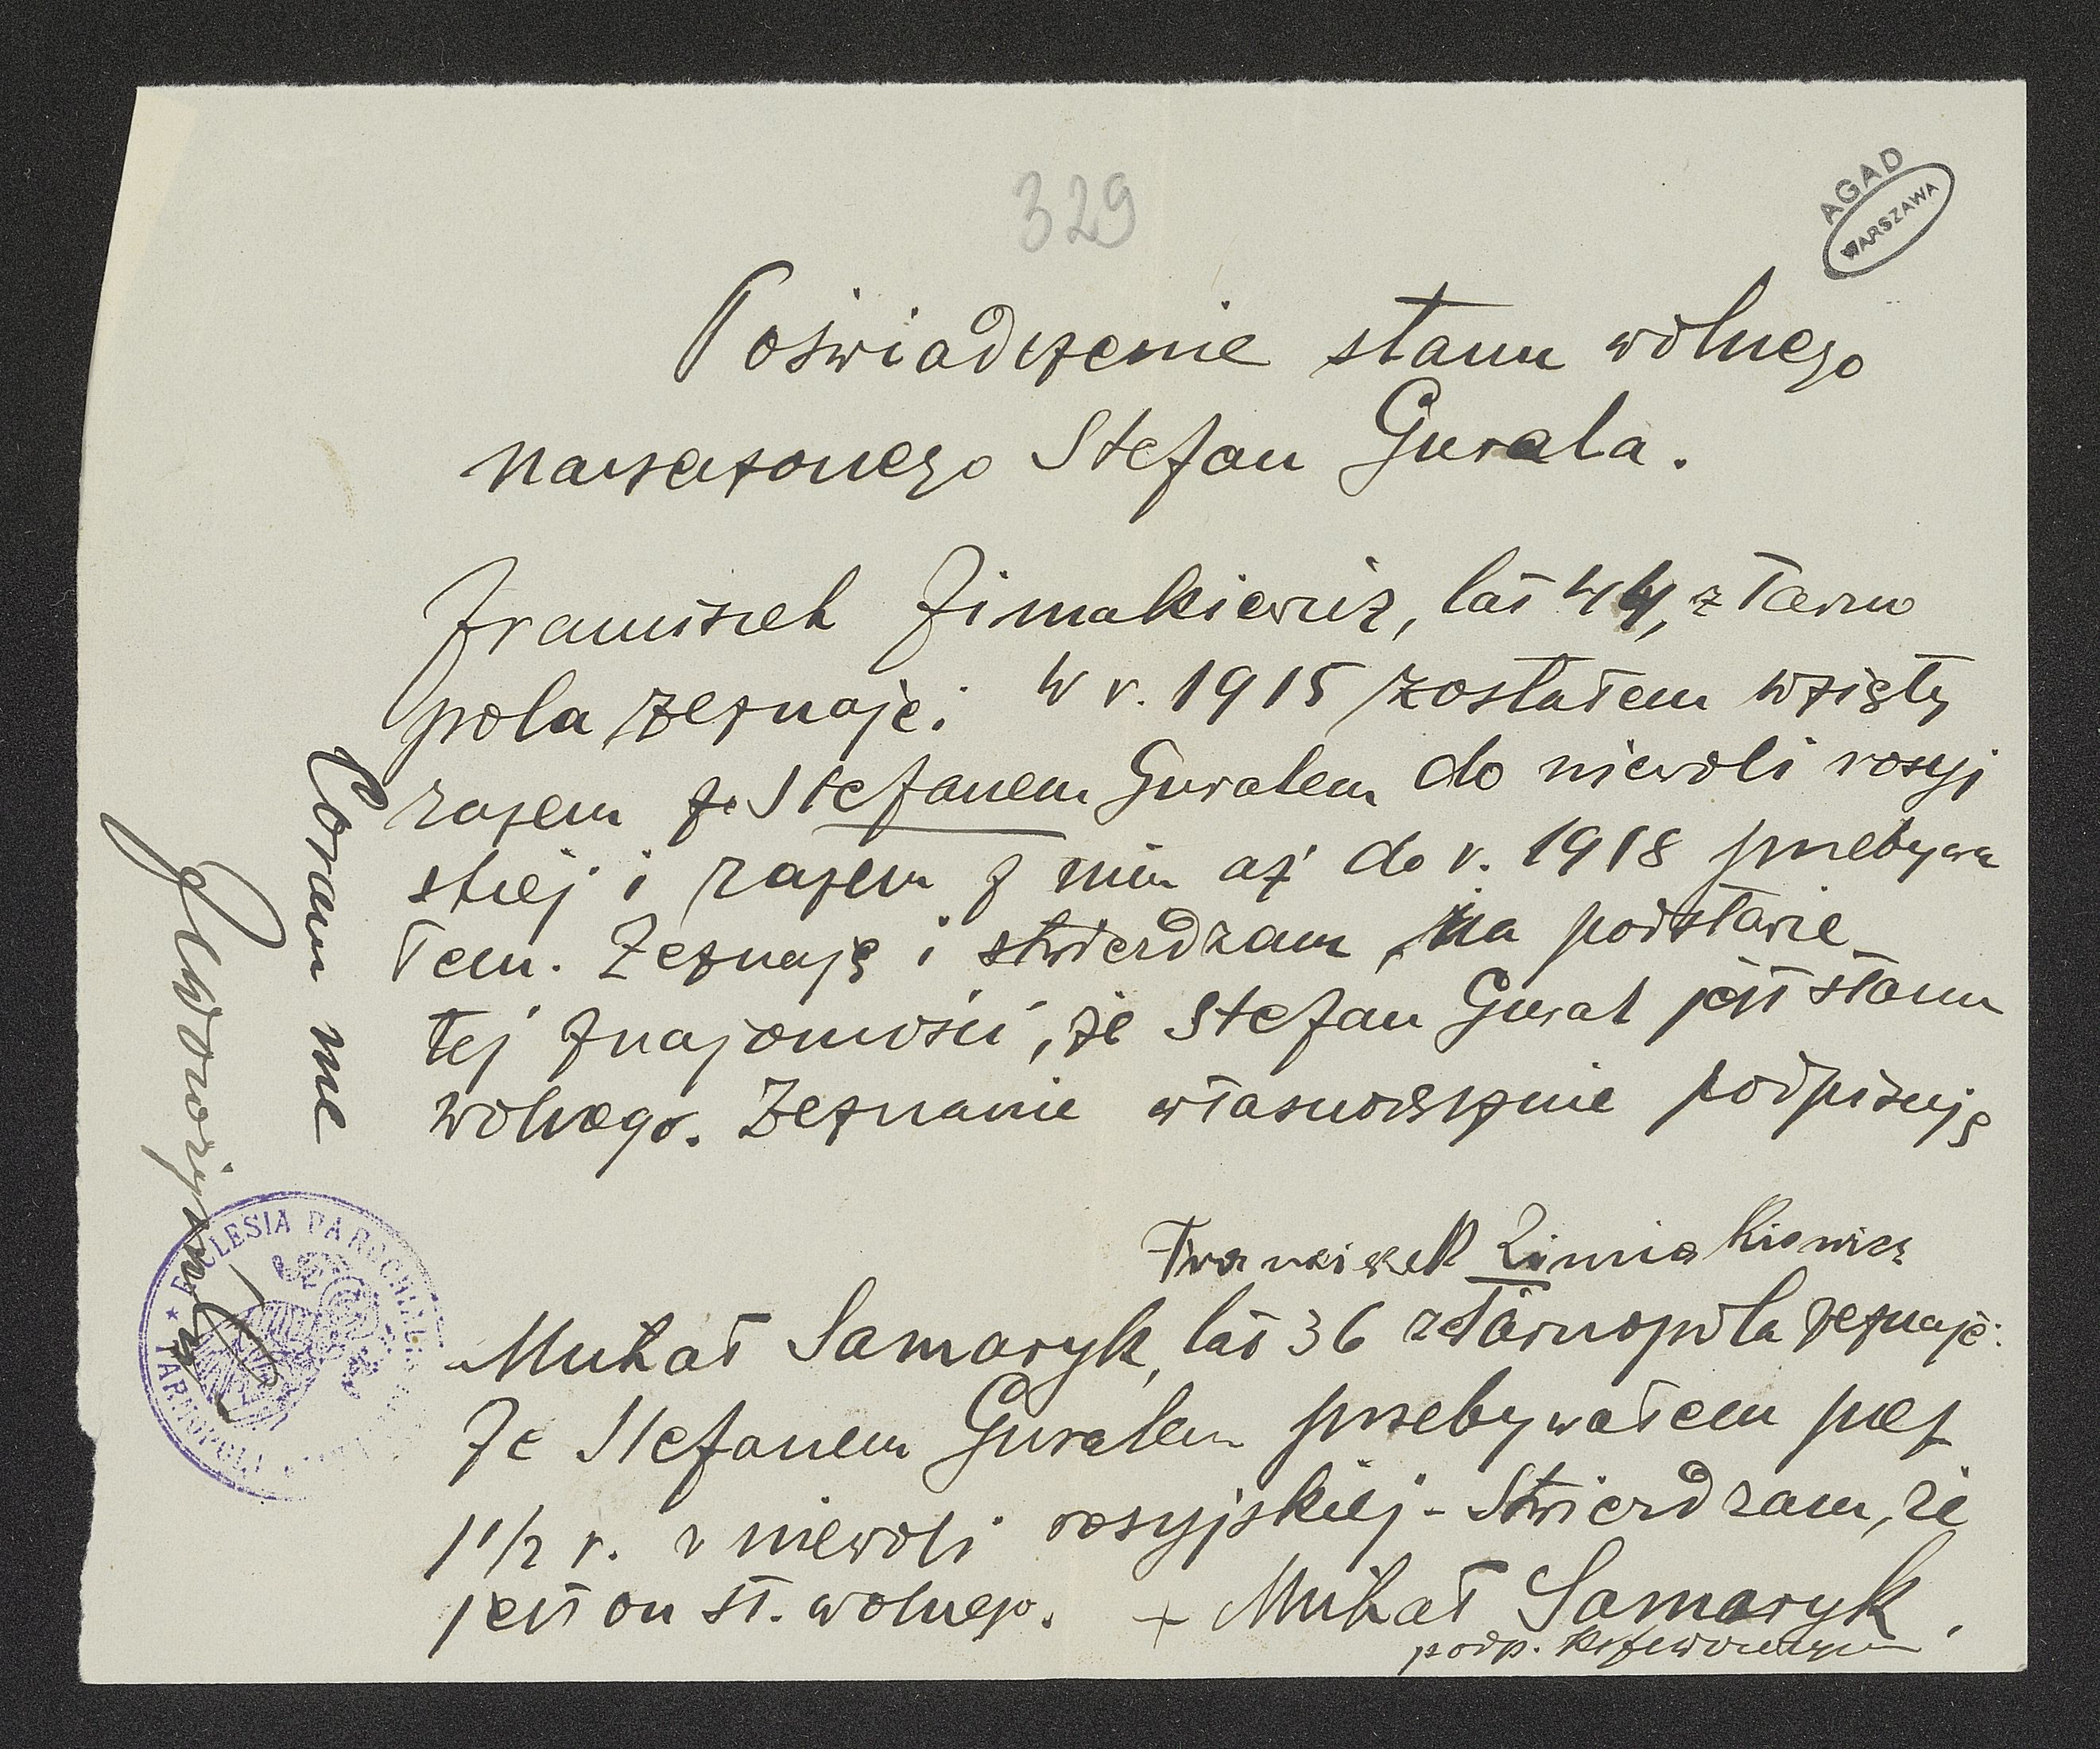 329
AGAD
WARSZAWA
Poświadczenie stanu wolnego
narzeczonego Stefan Gurala.
Franciszek Zimakiewicz, lat 44, z Tarno
pola zeznaje: W r. 1915 zostałem wzięty
razem ze Stefanem Guralem do niewoli rosyj
skiej i razem z nim aż do r. 1918 przebywa
łem. Zeznaję i stwierdzam na podstawie
tej znajomości, że Stefan Gural jest stanu
wolnego. Zeznanie własnoręcznie podpisuję
Franciszek Zimiakiewicz
Michał Samaryk, lat 36 z Tarnopola zeznaje:
Ze Stefanem Guralem przebywałem przez
1 1/2 r. w niewoli rosyjskiej - Stwierdzam, że
jest on st. wolnego. + Michał Samaryk.
podp.
Coram me
ECCLESIA PAROCHIALIS
TARNOPOLI